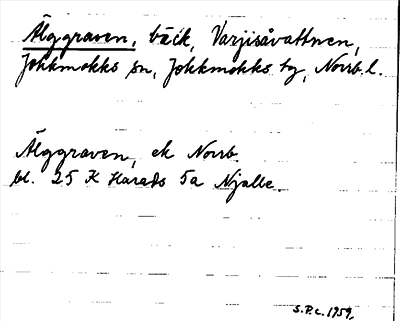 Älggraven, bäck, Varjisåvattnen,
Jokkmokks sn, Jokkmokks tg, Norrb. l.
Älggraven, ek Norrb.
bl. 25 K Harads 5a Njalle.
S.P.c. 1959.